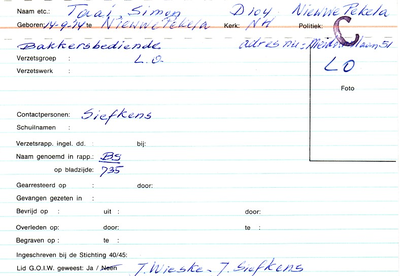 Naam etc.: Taai, Simon Dröy Nieuwe Pekela
Geboren: 14-9-24 te Nieuwe Pekela Kerk: NH Politiek: C
Bakkersbediende adres nu: 51
Verzetsgroep : L.O. LO
Verzetswerk :
Foto
Contactpersonen: Siefkens
Schuilnamen :
Verzetsrapp. ingel. dd. : bij:
Naam genoemd in rapp.: BS
op bladzijde: 735
Gearresteerd op : door:
Gevangen gezeten in :
Bevrijd op : uit : door:
Overleden op: door: te :
Begraven op : te :
Ingeschreven bij de Stichting 40/45:
Lid G.O.I.W. geweest: Ja / Neen T. Wieske - J. Siefkens